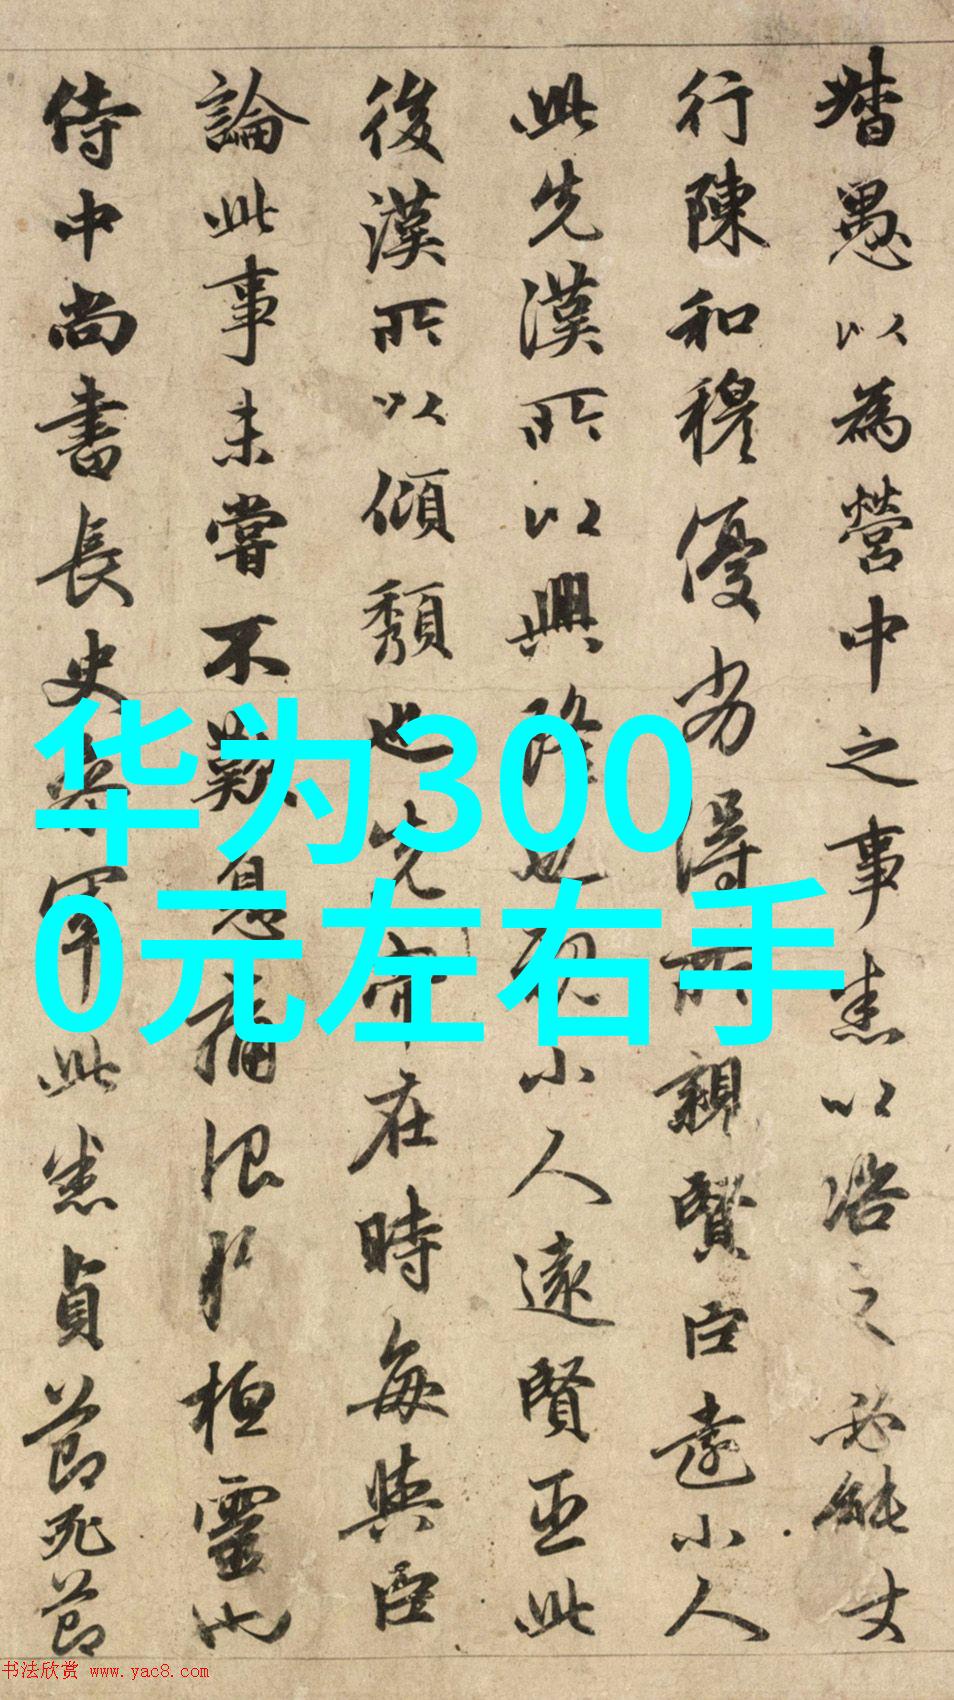 督愚以為營中之事悉以咨之必能丈
行陳和穆優劣得所親賢臣遠小人
此先漢所以興隆也親小人遠賢臣此
後漢所以傾頹也先帝在時每與臣
論此事未嘗不歎息痛恨於桓靈也
侍中尚書長史參軍此悉貞節死節
华为300
0元左右手
书法欣赏 www.yac8.com